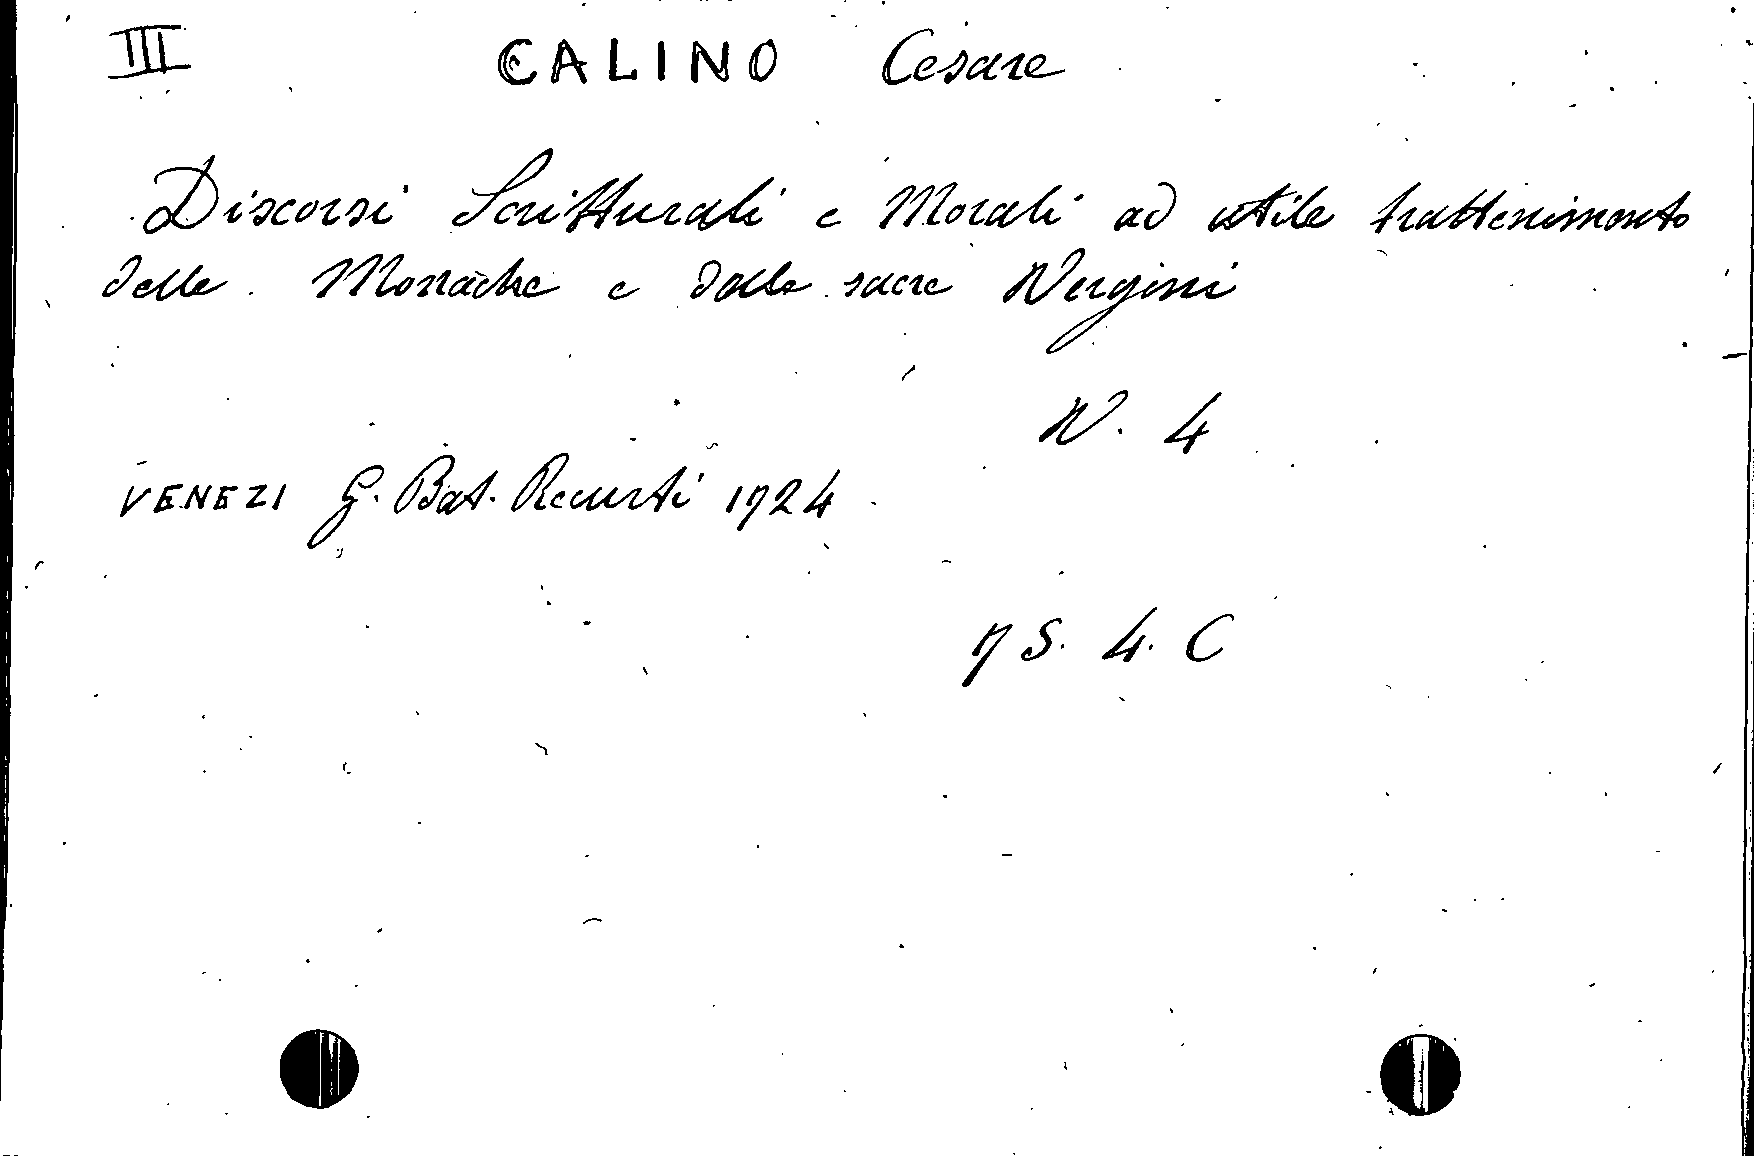 III CALINO Cesare
Discorsi Scritturali e Morali ad utile trattenimento
delle Monache e delle sacre Vergini
N. 4
VENEZI G. Bat. Recurti 1724
7 S. 4. C